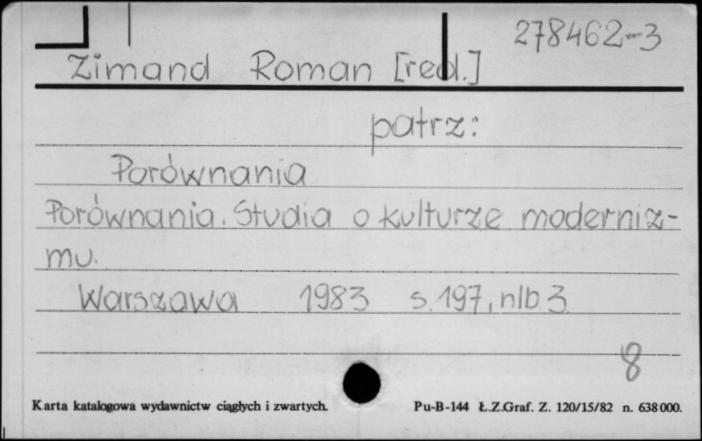 278462-3
Zimand Roman [red.]
patrz:
Porównania
Porównania. Studia o kulturze moderniz-
mu.
Warszawa 1983 s. 197, nlb 3
8
Karta katalogowa wydawnictw ciągłych i zwartych. Pu-B-144 Ł.Z.Graf. Z. 120/15/82 n. 638000.